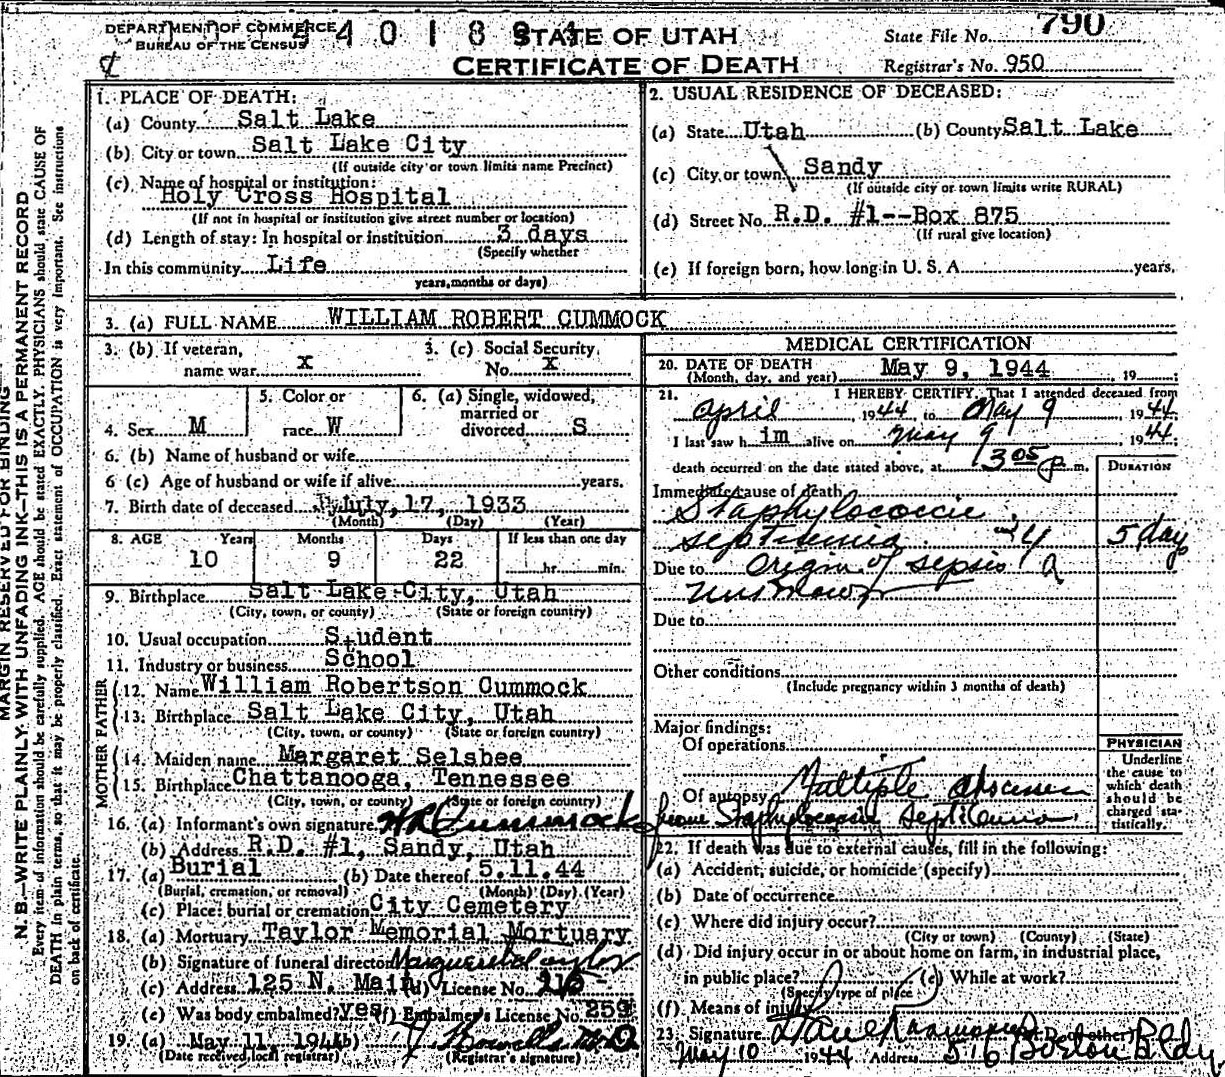 DEPARTMENT OF COMMERCE
BUREAU OF THE CENSUS
STATE OF UTAH
CERTIFICATE OF DEATH
State File No. 790
Registrar's No. 950
MARGIN RESERVED FOR BINDING
N. B.—WRITE PLAINLY, WITH UNFADING INK—THIS IS A PERMANENT RECORD
Every item of information should be carefully supplied. AGE should be stated EXACTLY. PHYSICIANS should state CAUSE OF
DEATH in plain terms, so that it may be properly classified. Exact statement of OCCUPATION is very important. See instructions
on back of certificate.
1. PLACE OF DEATH:
(a) County Salt Lake
(b) City or town Salt Lake City
(If outside city or town limits name Precinct)
(c) Name of hospital or institution:
Holy Cross Hospital
(If not in hospital or institution give street number or location)
(d) Length of stay: In hospital or institution 3 days
(Specify whether
In this community Life
years, months or days)
2. USUAL RESIDENCE OF DECEASED:
(a) State Utah (b) County Salt Lake
(c) City or town Sandy
(If outside city or town limits write RURAL)
(d) Street No. R.D. #1--Box 875
(If rural give location)
(e) If foreign born, how long in U. S. A. years.
3. (a) FULL NAME WILLIAM ROBERT CUMMOCK
3. (b) If veteran,
name war X
3. (c) Social Security
No. X
4. Sex M
5. Color or
race W
6. (a) Single, widowed,
married or
divorced S
6. (b) Name of husband or wife
6 (c) Age of husband or wife if alive: years.
7. Birth date of deceased July, 17, 1933
(Month) (Day) (Year)
8. AGE Years Months Days If less than one day
10 9 22 hr. min.
9. Birthplace Salt Lake City, Utah
(City, town, or county) (State or foreign country)
10. Usual occupation Student
11. Industry or business School
FATHER
12. Name William Robertson Cummock
13. Birthplace Salt Lake City, Utah
(City, town, or county) (State or foreign country)
MOTHER
14. Maiden name Margaret Selsbee
15. Birthplace Chattanooga, Tennessee
(City, town, or county) (State or foreign country)
16. (a) Informant's own signature WR Cummock
(b) Address R.D. #1, Sandy, Utah
17. (a) Burial (b) Date thereof 5.11.44
(Burial, cremation, or removal) (Month) (Day) (Year)
(c) Place: burial or cremation City Cemetery
18. (a) Mortuary Taylor Memorial Mortuary
(b) Signature of funeral director
(c) Address 125 N. Main (d) License No.
(e) Was body embalmed? yes (f) Embalmer's License No. 259
19. (a) May 11, 1944 (b) M.D.
(Date received local registrar) (Registrar's signature)
MEDICAL CERTIFICATION
20. DATE OF DEATH
(Month, day, and year) May 9, 1944 19
21. I HEREBY CERTIFY, That I attended deceased from
April 1944 to May 9 1944
I last saw h im alive on May 9 1944
death occurred on the date stated above, at 3 05 p. m.
DURATION
Immediate cause of death
Staphylococcic
septicemia 5 day
Due to Origin of sepsis
unknown
Due to
Other conditions
(Include pregnancy within 3 months of death)
Major findings:
Of operations
Of autopsy Multiple abscesses
from Staphylococcic septicemia
PHYSICIAN
Underline
the cause to
which death
should be
charged sta-
tistically.
22. If death was due to external causes, fill in the following:
(a) Accident, suicide, or homicide (specify)
(b) Date of occurrence
(c) Where did injury occur?
(City or town) (County) (State)
(d) Did injury occur in or about home on farm, in industrial place,
in public place? (e) While at work?
(Specify type of place)
(f) Means of injury
23. Signature (M. D. or other)
May 10 1944 Address 516 Boston Bldg